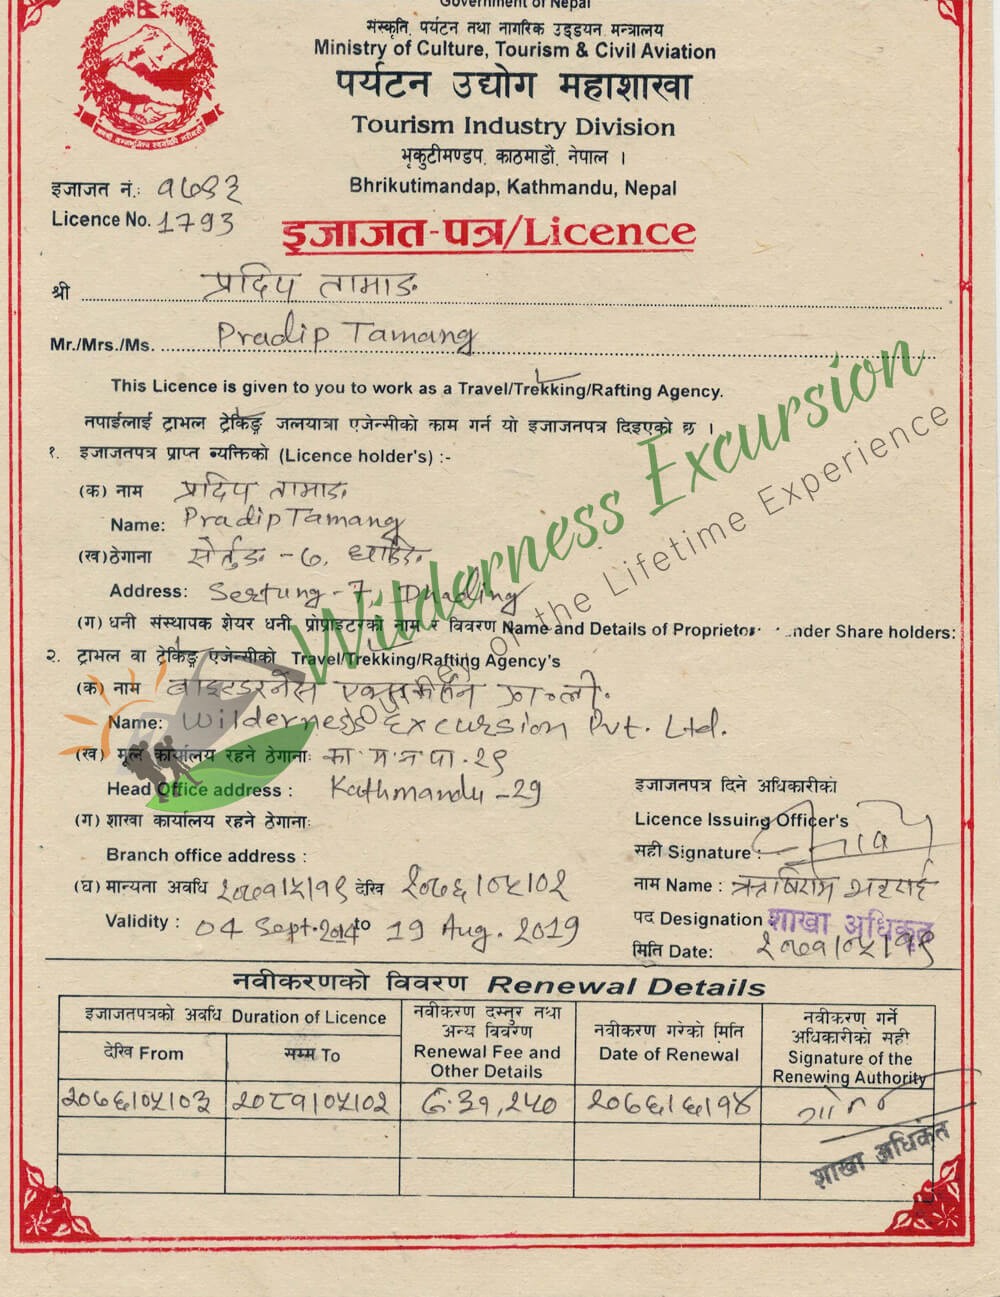 Government of Nepal
संस्कृति, पर्यटन तथा नागरिक उड्डयन मन्त्रालय
Ministry of Culture, Tourism & Civil Aviation
पर्यटन उद्योग महाशाखा
Tourism Industry Division
भृकुटीमण्डप, काठमाडौं, नेपाल ।
Bhrikutimandap, Kathmandu, Nepal
इजाजत नं.: १७९३
Licence No. 1793
इजाजत-पत्र/Licence
श्री प्रदिप तामाङ
Mr./Mrs./Ms. Pradip Tamang
This Licence is given to you to work as a Travel/Trekking/Rafting Agency.
नपाईलाई ट्राभल ट्रेकिङ्ग जलयात्रा एजेन्सीको काम गर्न यो इजाजतपत्र दिइएको छ ।
१. इजाजतपत्र प्राप्त व्यक्तिको (Licence holder's) :-
(क) नाम प्रदिप तामाङ
Name: Pradip Tamang
(ख) ठेगाना सेर्तुङ - ७, धादिङ
Address: Sertung - 7, Dhading
(ग) धनी संस्थापक शेयर धनी, प्रोप्राइटरको नाम र विवरण Name and Details of Proprietor nder Share holders:
२. ट्राभल वा ट्रेकिङ्ग एजेन्सीको Travel/Trekking/Rafting Agency's
(क) नाम वाइल्डरनेस एक्सकर्सन प्रा. ली.
Name: Wilderness Excursion Pvt. Ltd.
(ख) मूल कार्यालय रहने ठेगानाः का म न पा - २९
Head Office address : Kathmandu - 29
(ग) शाखा कार्यालय रहने ठेगानाः
Branch office address :
(घ) मान्यता अवधि २०७१/५/१९ देखि २०७६/०५/०२
Validity : 04 Sept. 2014 to 19 Aug. 2019
इजाजतपत्र दिने अधिकारीको
Licence Issuing Officer's
सही Signature :
नाम Name : ऋषिराम भट्टराई
पद Designation शाखा अधिकृत
मिति Date: २०७१/०५/१९
नवीकरणको विवरण Renewal Details
इजाजतपत्रको अवधि Duration of Licence
देखि From
सम्म To
नवीकरण दस्तुर तथा
अन्य विवरण
Renewal Fee and
Other Details
नवीकरण गरेको मिति
Date of Renewal
नवीकरण गर्ने
अधिकारीको सही
Signature of the
Renewing Authority
२०७६/०५/०३ २०८१/०५/०२ रु. ३१,२५० २०७६/६/१४
शाखा अधिकृत
Wilderness Excursion
Journey on the Lifetime Experience